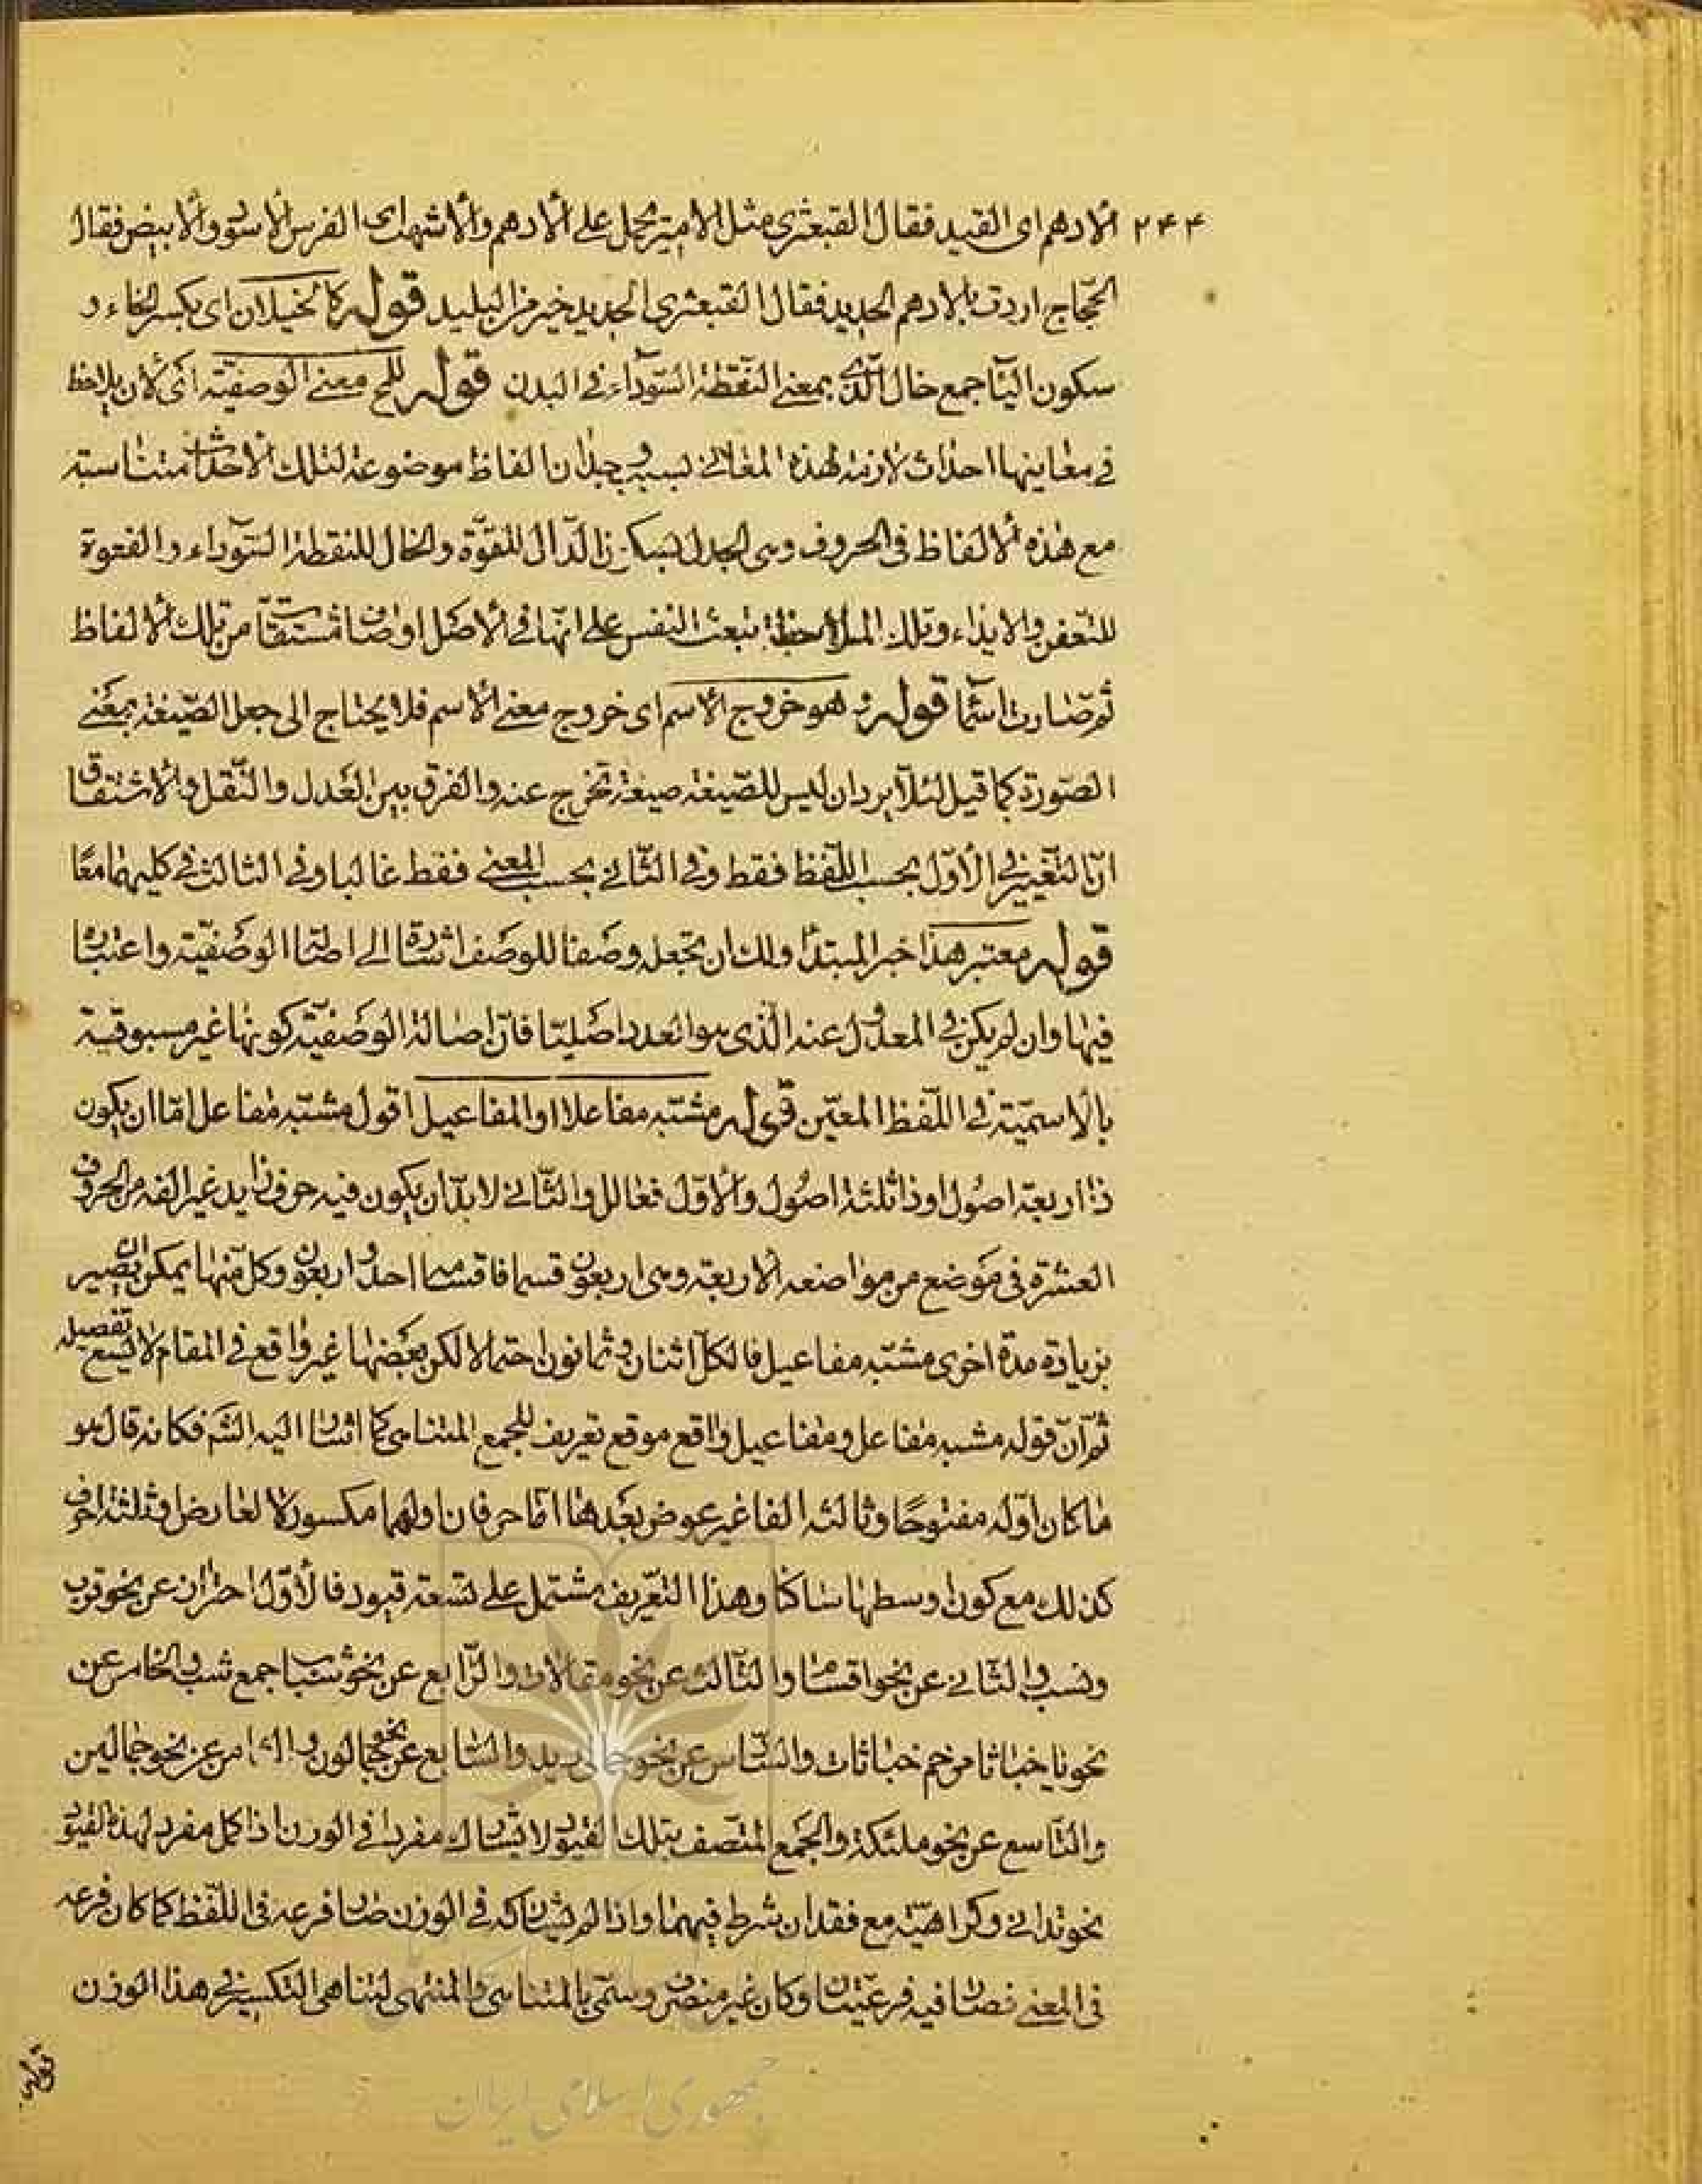 ۲۴۴ الأدهم اى القيد فقال القبعثرى مثل الامير يحمل على الأدهم والأشهب اى الفرس الأسود والأبيض فقال
الحجّاج اردت بالادهم الحديد فقال القبعثرى الحديد خير من البليد قوله كالخيلان اى بكسر الخاء و
سكون اليآء جمع خال الّذى بمعنى النّقطة السّوداء فى البدن قوله للمح معنى الوصفيّة اى لأن يلاحظ
فى معاينها احداث لازمة لهذه المعانى بسبب وجدان الفاظ موضوعة لتلك الأحداث متناسبة
مع هذه الألفاظ فى الحروف وهى الجدل بسكون الدّال للقوّة والخال للنقطة السّوداء والفعوة
للتعفن والايذاء وتلك الملاحظة تبعث النفس على انها فى الأصل اوصاف مشتقات من تلك الألفاظ
ثم صارت اسمآء قوله وهو خروج الأسم اى خروج معنى الأسم فلا يحتاج الى جعل الصّيغة بمعنى
الصّورة كما قيل لئلّا يرد ان ليس للصّيغة صيغة تخرج عنه والفرق بين العدل والنّقل والأشتقاق
انّ التّغيير فى الأوّل بحسب اللّفظ فقط وفى الثّانى بحسب المعنى فقط غالبا وفى الثالث فى كليهما معًا
قوله معتبر هذا خبر المبتدأ ولك ان تجعله وصفا للوصف اشارة الى اصالة الوصفيّة واعتبارها
فيها وان لم يكن فى المعدول عنه الّذى هو العدد اصليّا فانّ اصالة الوصفيّة كونها غير مسبوقية
بالاسميّة فى اللّفظ المعيّن قوله مشبّه مفاعلا او المفاعيل اقول مشبّه مفاعل امّا ان يكون
ذا اربعة اصول او ذا ثلثة اصول والأوّل فعالل والثّانى لابدّ ان يكون فيه حرف زايد غير الفه من الحروف
العشرة فى موضع من مواضعه الأربعة وهى اربعون قسما فاقسامها احد واربعون وكل منها يمكن ان يصير
بزيادة مدة اخرى مشبّه مفاعيل فالكلّ اثنان وثمانون احتمالا لكن بعضها غير واقع فى المقام لا يسع تفصيله
ثم انّ قوله مشبه مفاعل ومفاعيل واقع موقع تعريف للجمع المتناهى كما اشار اليه الشّم فكانه قال هو
ما كان اوّله مفتوحًا وثالثه الفا غير عوض بعدها امّا حرفان اولهما مكسور لا لعارض او ثلثة احرف
كذلك مع كون اوسطها ساكنا وهذا التعّريف مشتمل على تسعة قيود فالأوّل احتراز عن نحو
والثّانى عن نحو اقساما والثّالث عن نحو مقالات والرّابع عن نحو جمع والخامس عن
نحو يا خباثا مرخم خباثات والسّادس عن نحو والسّابع عن نحو جمالون والثامن عن نحو جمالين
والتّاسع عن نحو ملئكة والجمع المتّصف بتلك القيود لا يشارك مفردا فى الوزن اذ كل مفرد لهذه القيود
نحو تدانى وكراهيّة مع فقدان شرط فيهما واذا لم يشاركه فى الوزن صار فرعه فى اللّفظ كما كان فرعه
فى المعنى فصار فيه فرعيّتان وكان غير منصرف وسمّى بالمتناهى والمنتهى لتناهى التكسير فى هذا الوزن
جمهوری اسلامی ایران